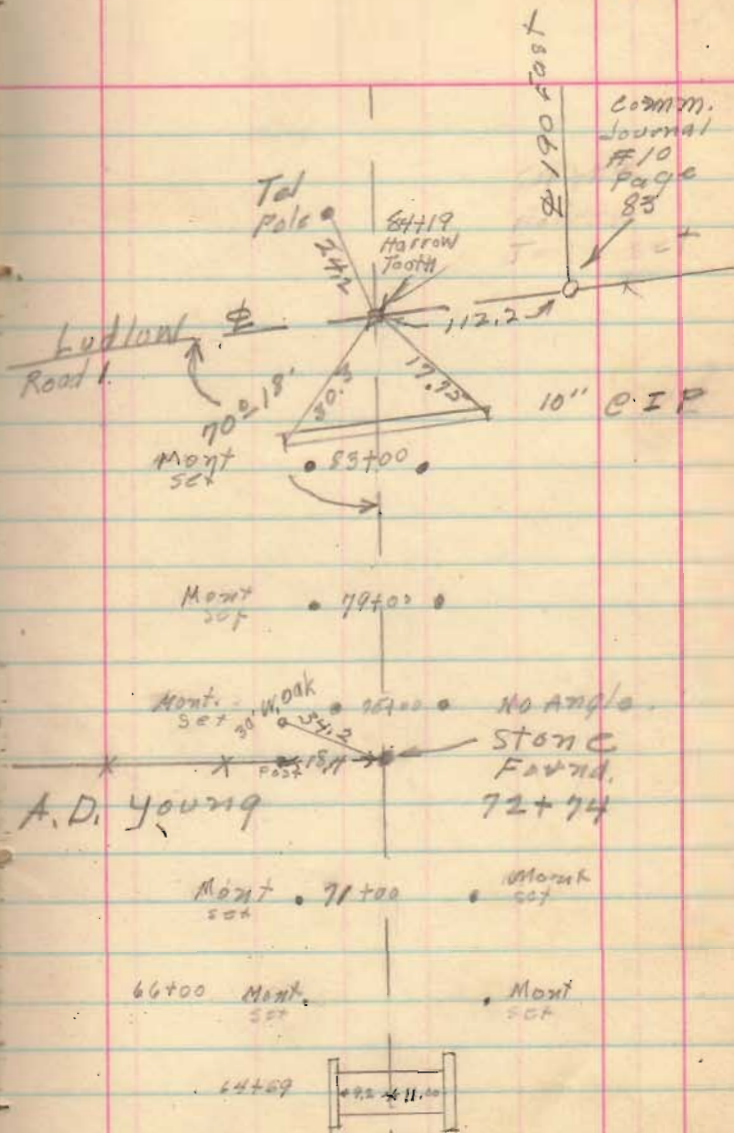 Comm.
Journal
#10
Page
83
Tel
Pole
24.2
84+19
Harrow
Tooth
112.2
Ludlow ℄
Road 1.
70°-18'
30.3
17.75
10" C I P
Mont
set
83+00
Mont
set
79+00
Mont.
set
30" W. oak
34.2
No Angle.
Stone
Found.
72+74
Post
A. D. Young
Mont
set
71+00
Mont
set
66+00
Mont.
set
Mont
set
64+69